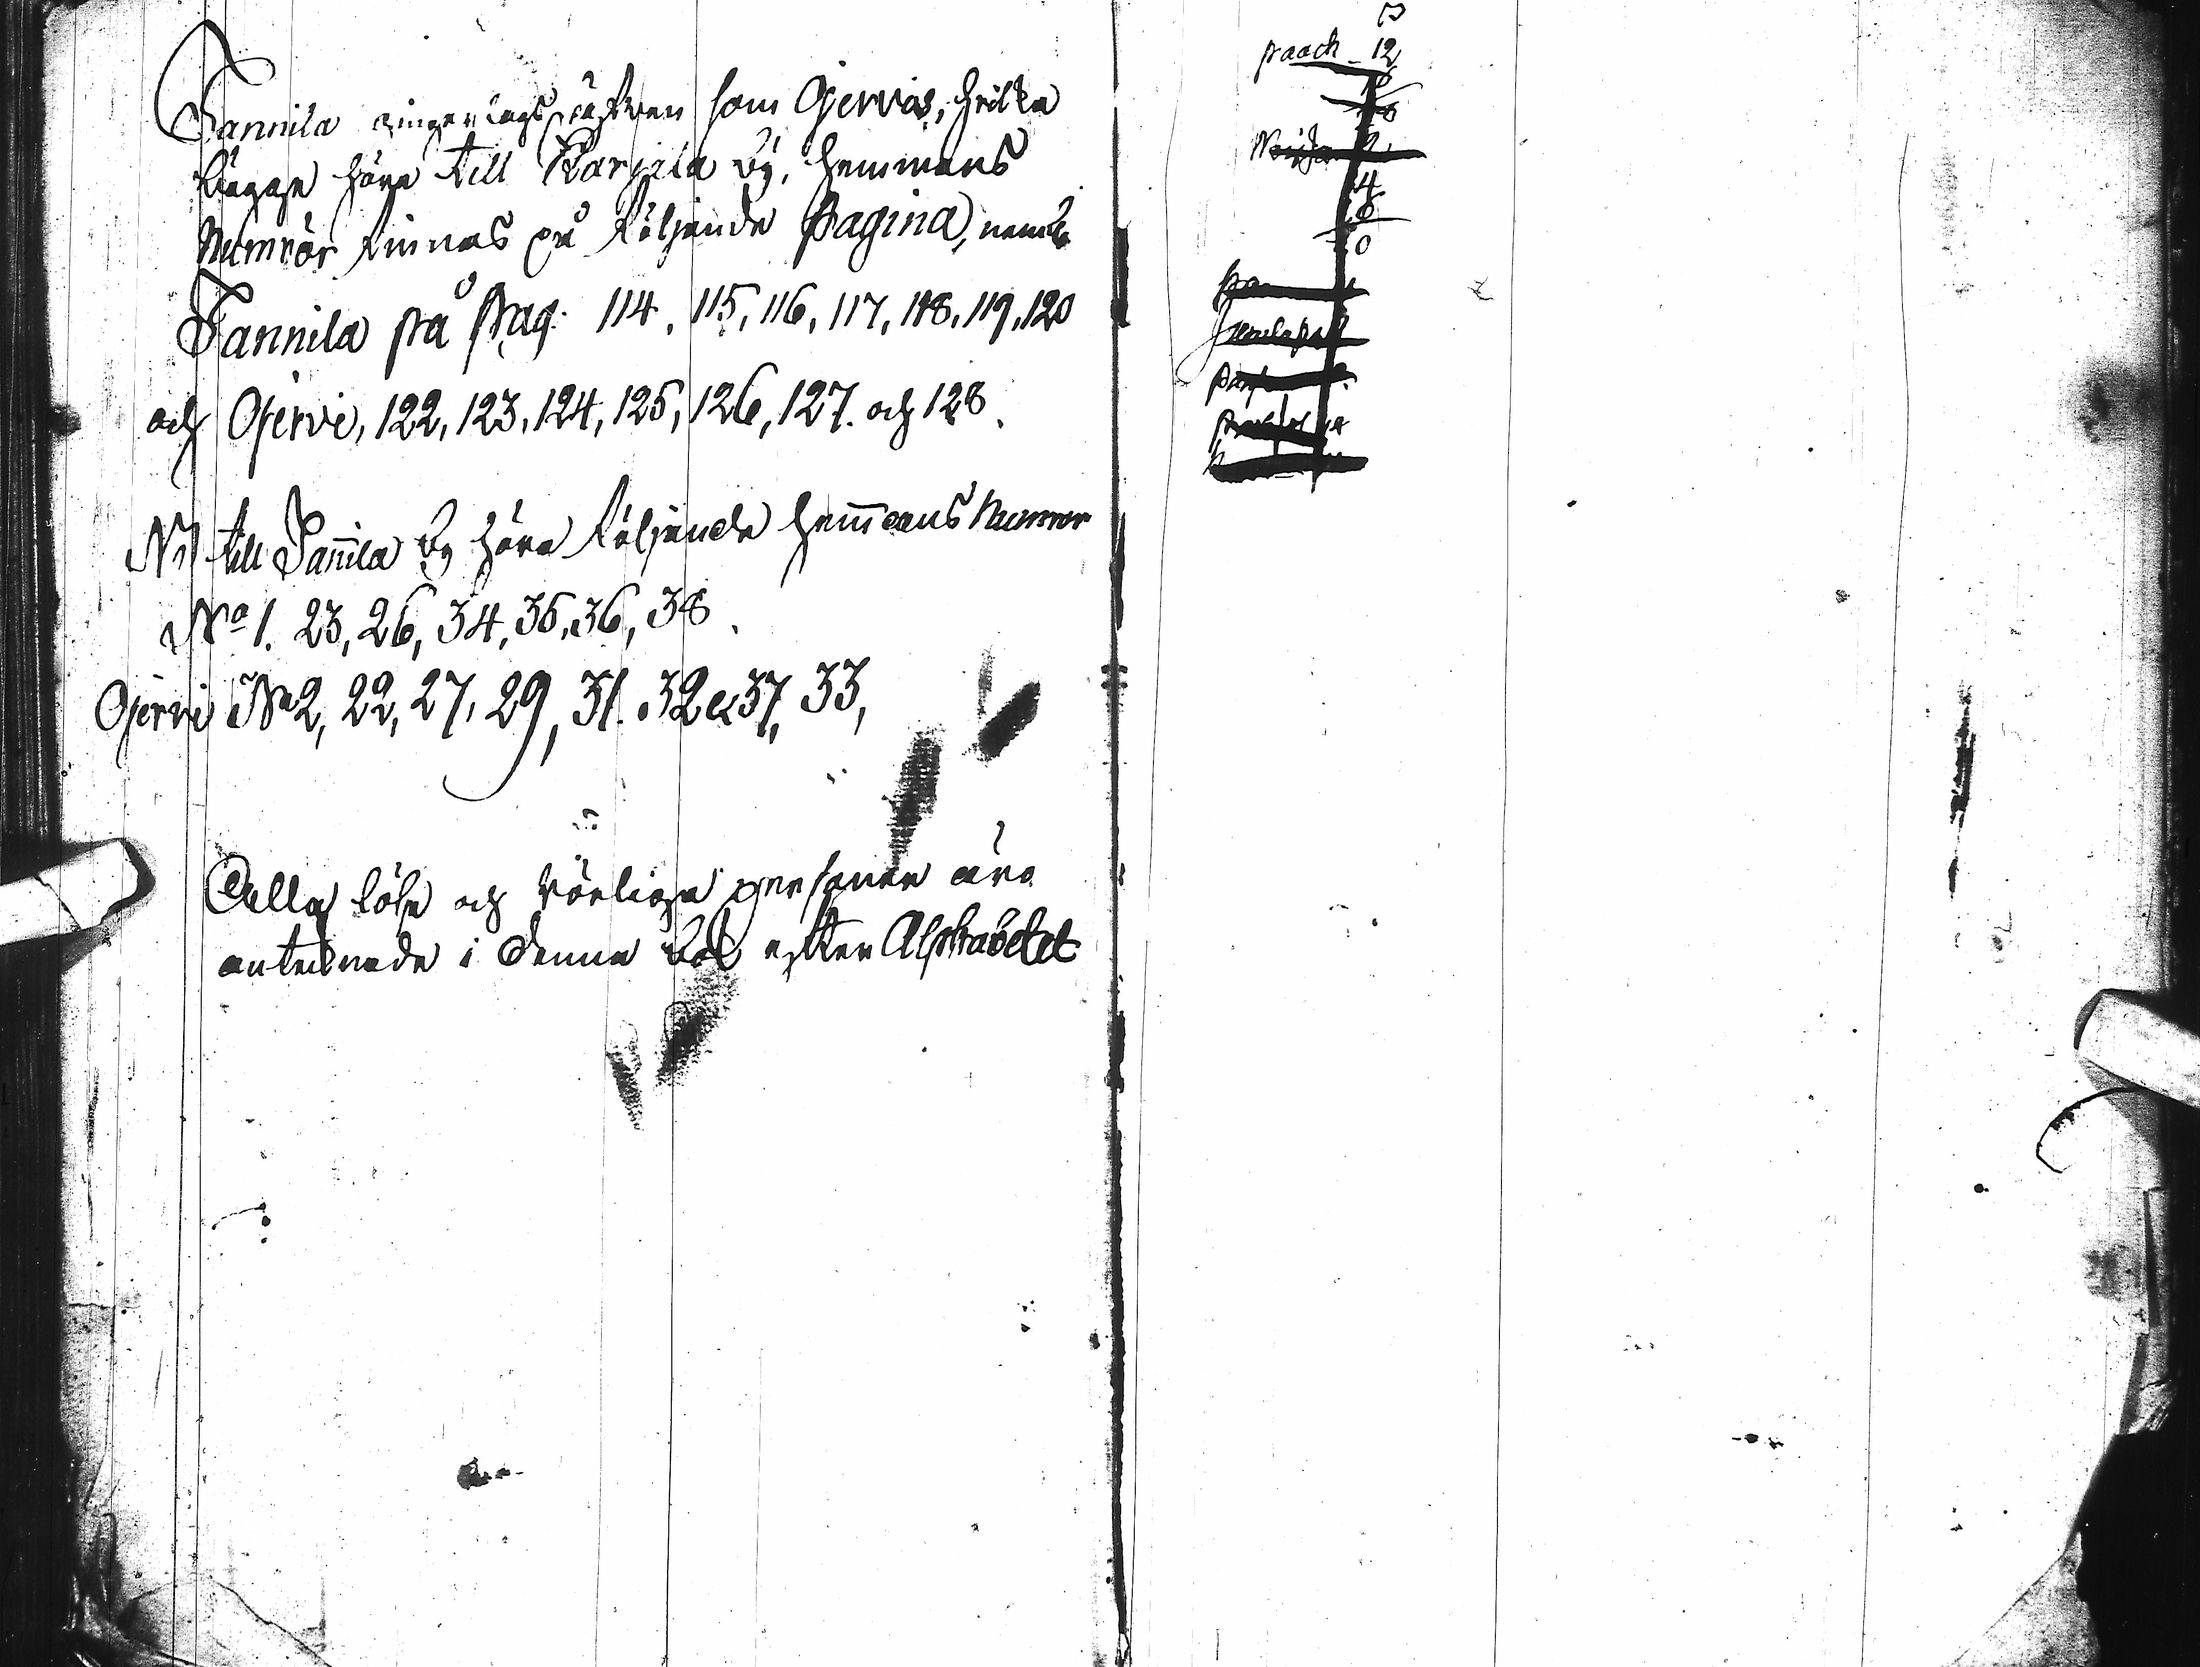 Tannila ringerlags såwen som Ojervis, hvilka
bägge höra till Karjala by, hemmans
Numror finnas på följande Pagina, neml.
Tannila på Pag: 114, 115, 116, 117, 118, 119, 120
och Ojervi, 122, 123, 124, 125, 126, 127. och 128.
till Tan̄ila by höra följande hem̄ans Numror
No 1. 23, 26, 34, 35, 36, 38.
Ojervi No 2, 22, 27, 29, 31. 32 & 37, 33,
Alla löse och vönliga personer äro
antecknade i denna bok efter Alphabetet
paach - 12
4
6
0